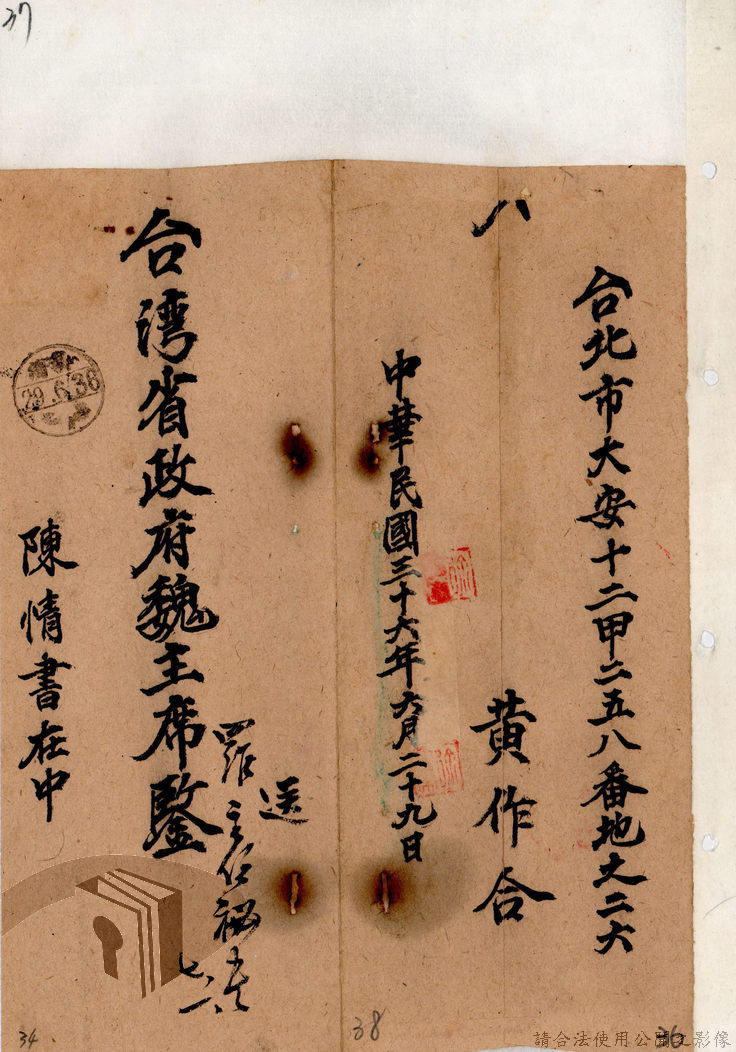 37
台北市大安十二甲二五八番地之二六
黄作合
八
中華民國三十六年六月二十九日
送
羅主任秘書
七、一
台湾省政府魏主席鑒
陳情書在中
29.6.36
34
38
36
請合法使用公開之影像